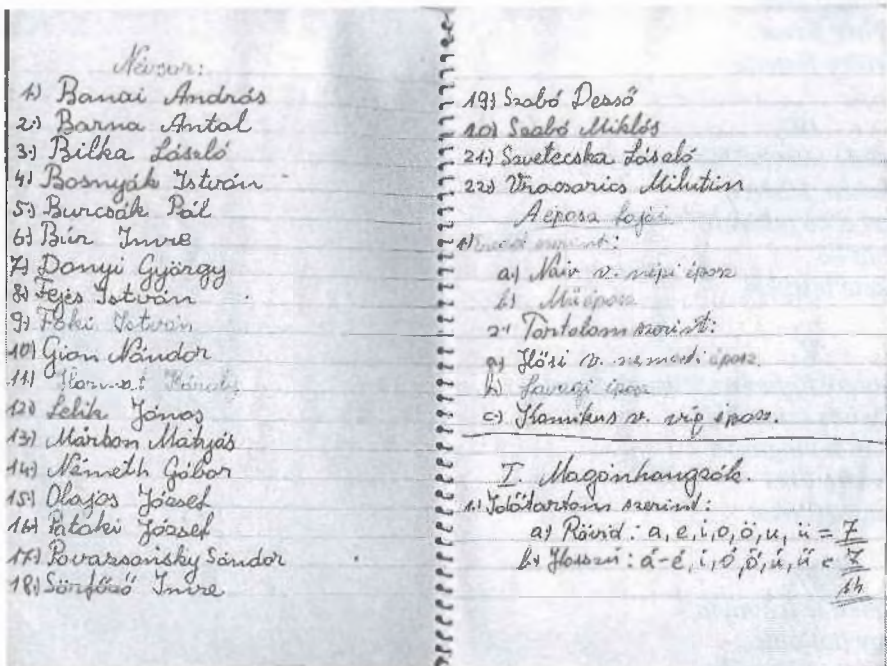 Névsor:
1) Banai András
2.) Barna Antal
3.) Bilka László
4) Bosnyák István
5) Burcsák Pál
6) Búr Imre
7) Donyi György
8) Fejes István
9) Fóki István
10) Gion Nándor
11)
12) Lelik János
13) Márton Mátyás
14) Németh Gábor
15) Olajos József
16) Pataki József
17) Povazsonsky Sándor
18) Sörfőző Imre
19) Szabó Dezső
20) Szabó Miklós
21.) Szvetecska László
22) Vracsarics Milutin
A eposz fajai
1) Eredet szerint:
a.) Naiv v. népi éposz
b) Műéposz
2.) Tartalom szerint:
a) Hősi v. nemzeti éposz
b) Lovagi éposz
c) Komikus v. víg éposz.
I. Magánhangzók.
1.) Időtartam szerint:
a) Rövid: a, e, i, o, ö, u, ü = 7
b) Hosszú: á-é, í, ó, ő, ú, ű = 7
14